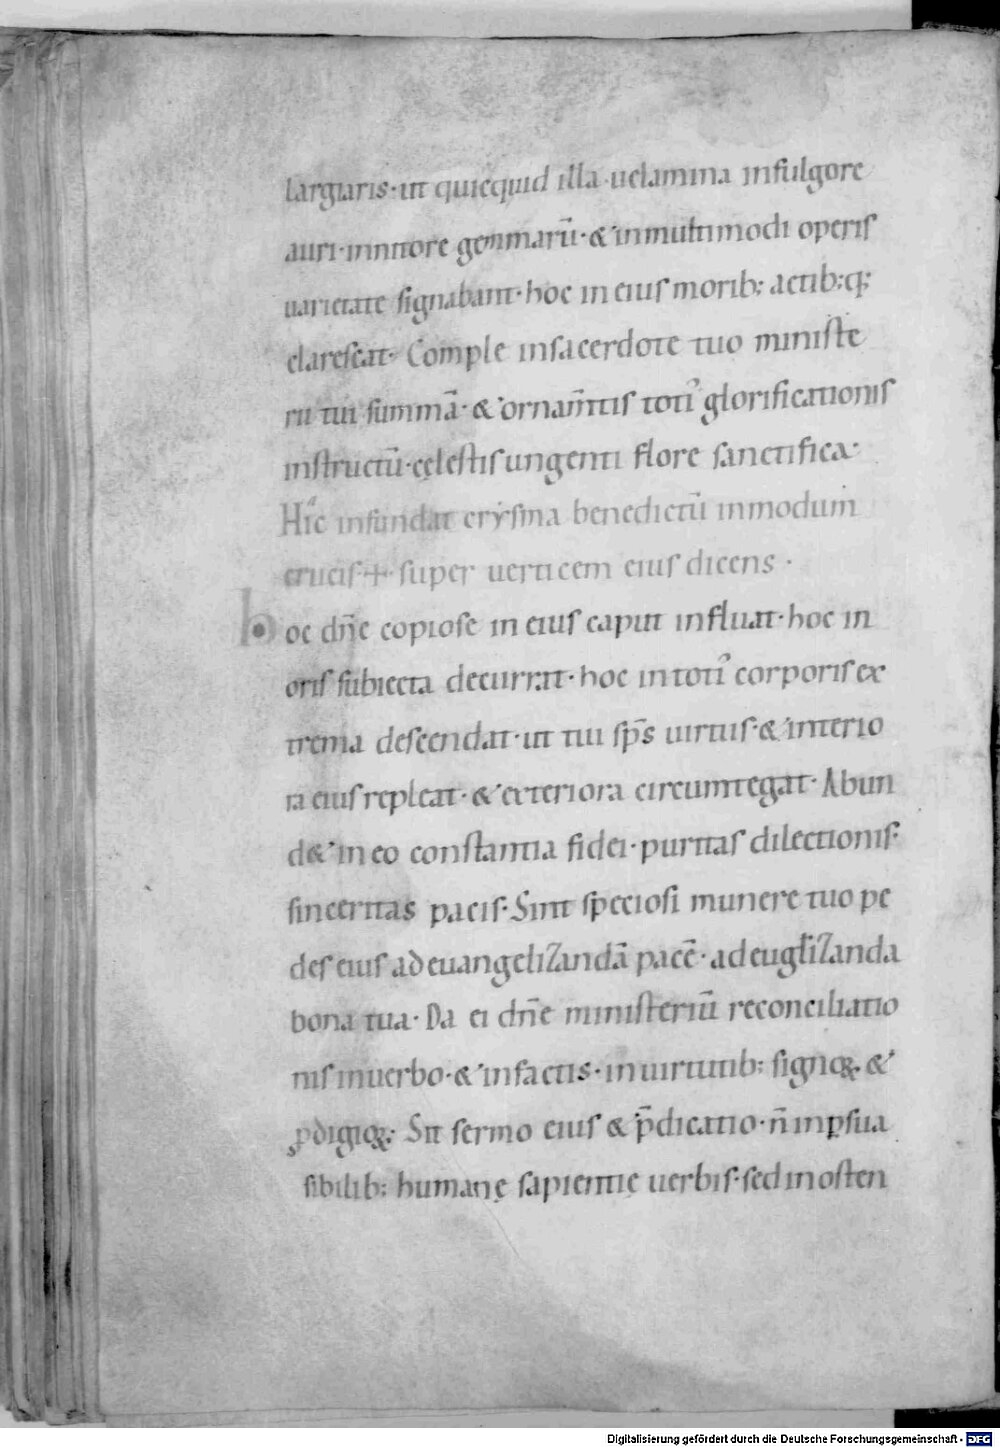 largiaris· ut quicquid illa uelamina infulgore
auri· innitore gemmarū· & inmultimodi operis
uarietate signabant· hoc in eius morib; actib;q;
clarescat· Comple insacerdote tuo ministe
rii tui summā· & ornam̄tis toti᾿ glorificationis
instructū· cęlestis ungenti flore sanctifica·
Hic infundat crysma benedictū inmodum
crucis + super uerticem eius dicens ·
hoc dn̄e copiose in eius caput influat· hoc in
oris subiecta decurrat· hoc intoti᾿ corporis ex
trema descendat· ut tui sp̄s uirtus· & interio
ra eius repleat· & exteriora circumtegat· Abun
d& in eo constantia fidei· puritas dilectionis·
sinceritas pacis· Sint speciosi munere tuo pe
des eius ad euangelizandā pacē· ad eugl̄izanda
bona tua· Da ei dn̄e ministeriū reconciliatio
nis inuerbo· & infactis· inuirtutib; signiqꝫ· &
ꝓdigiiqꝫ· Sit sermo eius & p̄dicatio· n̄ inꝑsua
sibilib; humanę sapientię uerbis· sed inosten
Digitalisierung gefördert durch die Deutsche Forschungsgemeinschaft - DFG